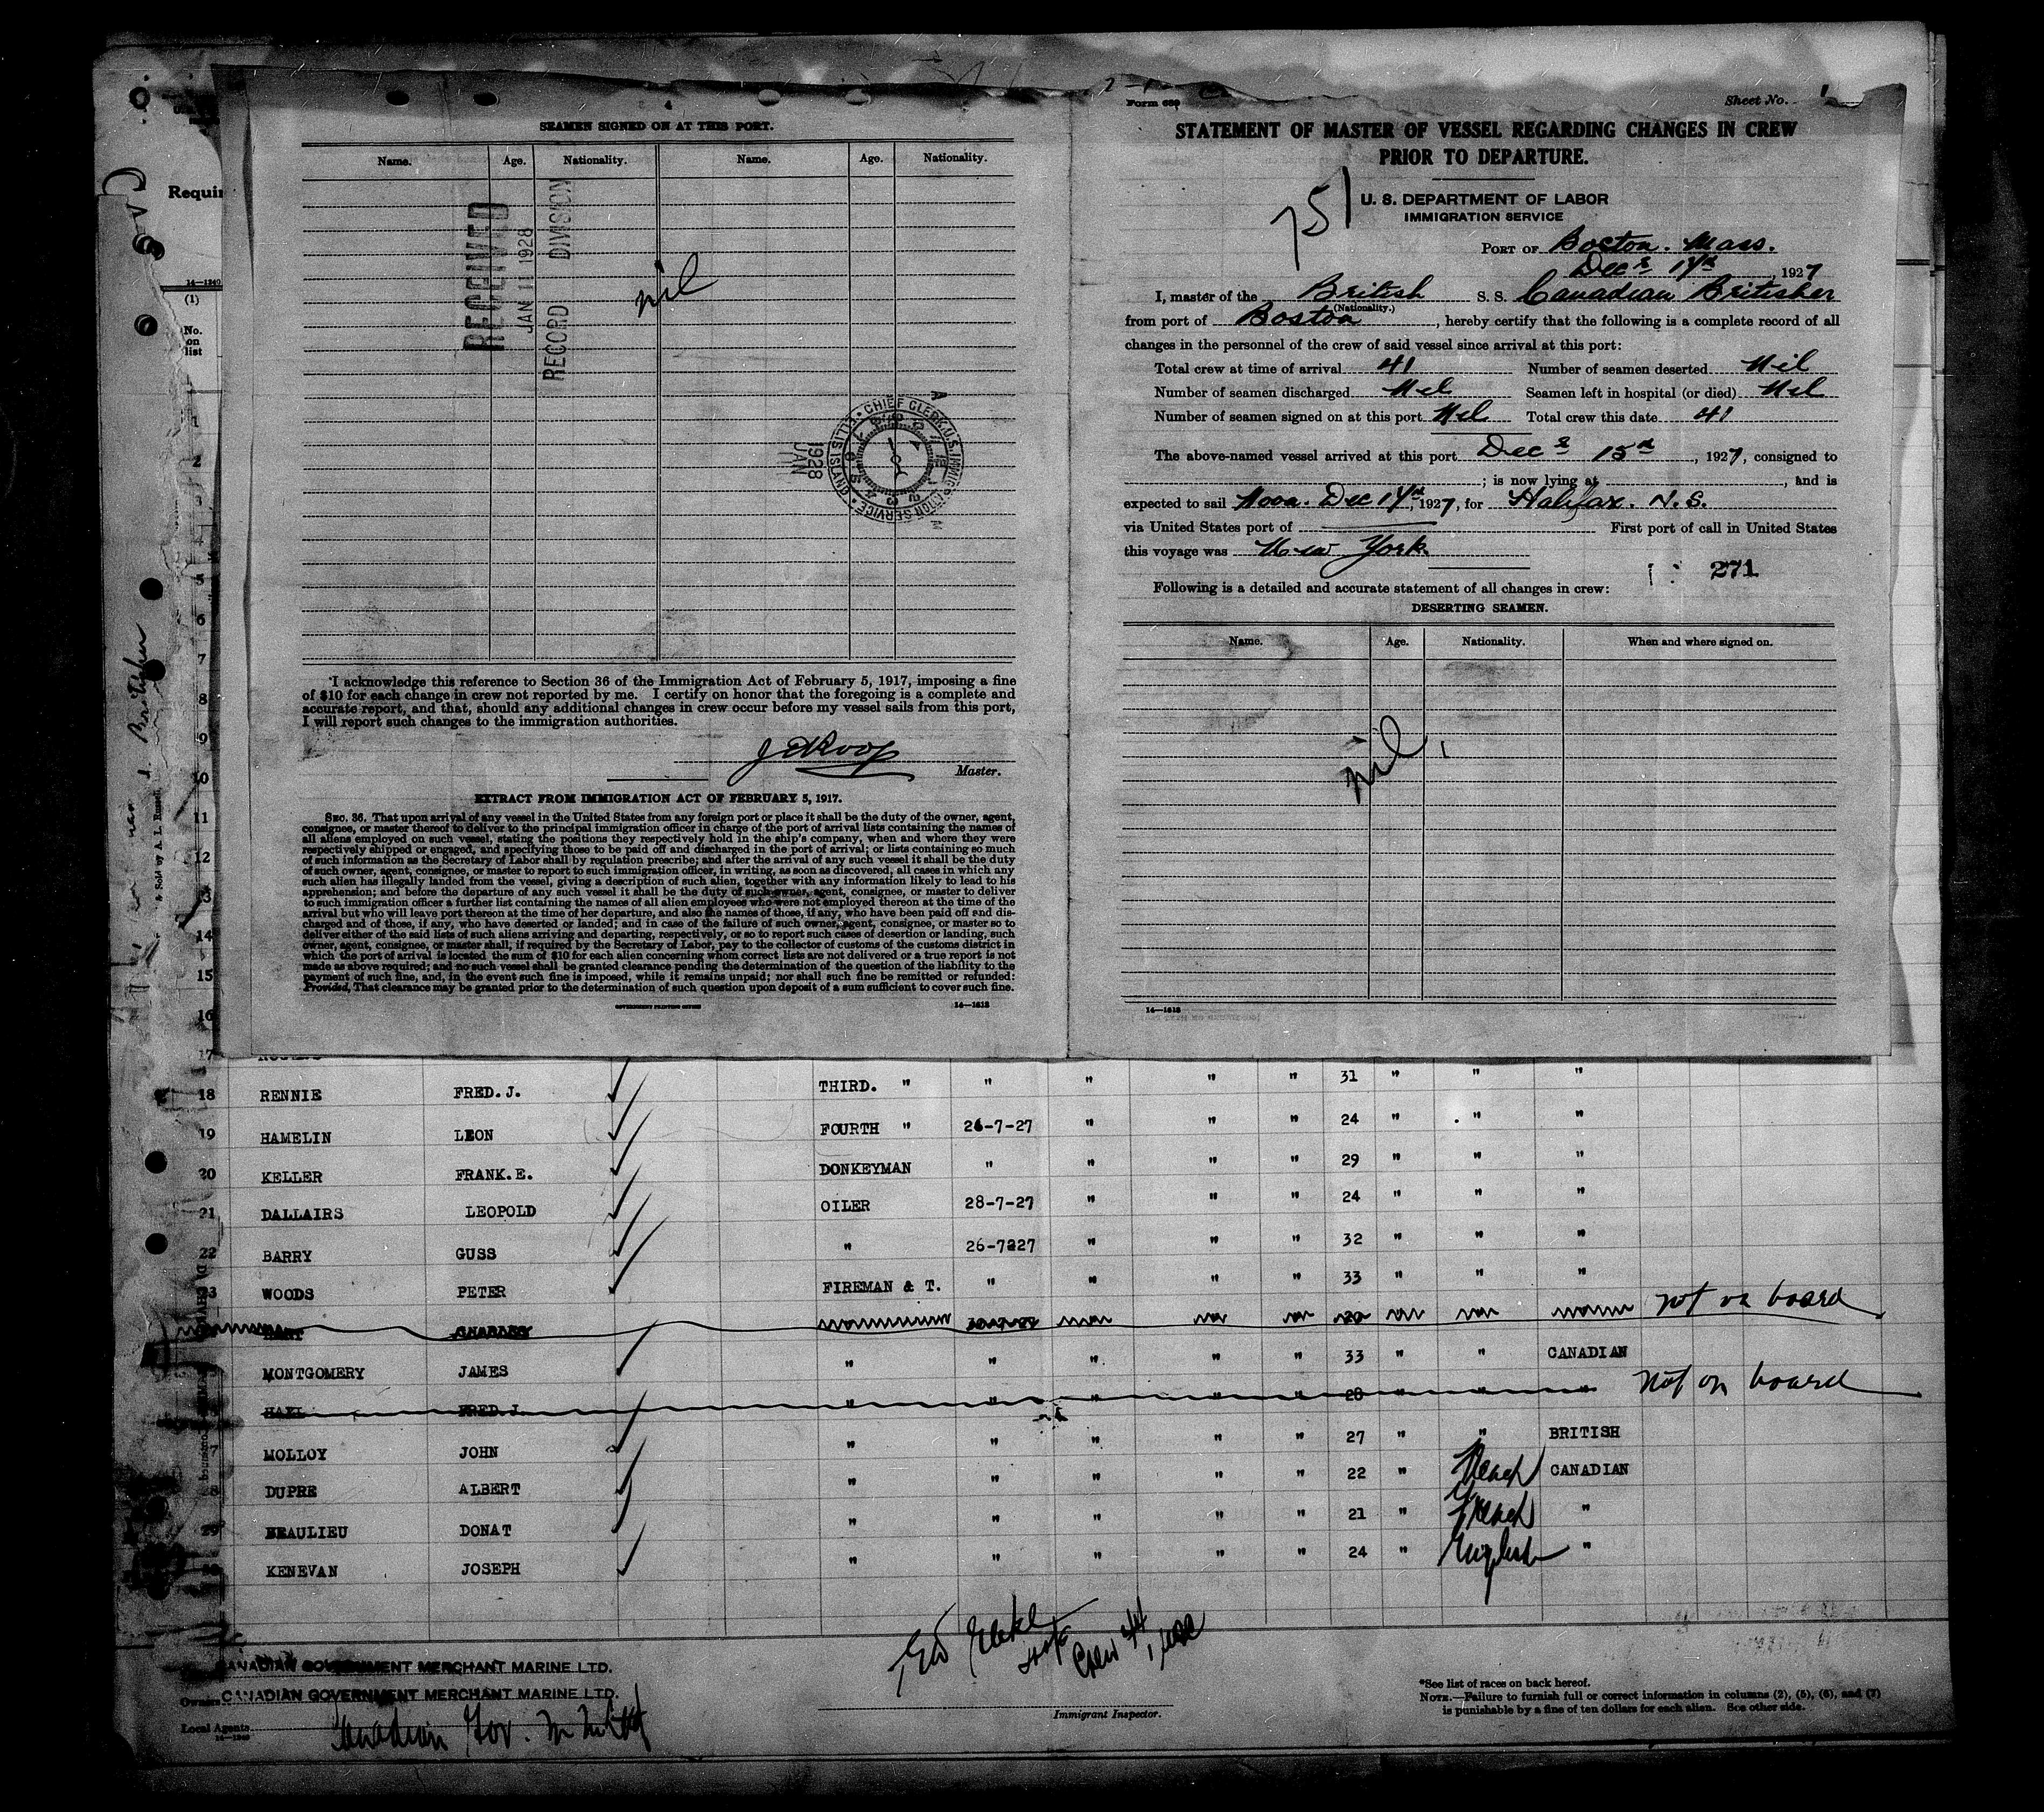 4
SEAMEN SIGNED ON AT THIS PORT.
Name. Age. Nationality. Name. Age. Nationality.
RECEIVED
JAN 11 1928
RECORD DIVISION
nil
CHIEF CLERK, U.S. IMMIGRATION SERVICE ELLIS ISLAND
1928
JAN
11
I acknowledge this reference to Section 36 of the Immigration Act of February 5, 1917, imposing a fine
of $10 for each change in crew not reported by me. I certify on honor that the foregoing is a complete and
accurate report, and that, should any additional changes in crew occur before my vessel sails from this port,
I will report such changes to the immigration authorities.
Master.
EXTRACT FROM IMMIGRATION ACT OF FEBRUARY 5, 1917.
SEC. 36. That upon arrival of any vessel in the United States from any foreign port or place it shall be the duty of the owner, agent,
consignee, or master thereof to deliver to the principal immigration officer in charge of the port of arrival lists containing the names of
all aliens employed on such vessel, stating the positions they respectively hold in the ship's company, when and where they were
respectively shipped or engaged, and specifying those to be paid off and discharged in the port of arrival; or lists containing so much
of such information as the Secretary of Labor shall by regulation prescribe; and after the arrival of any such vessel it shall be the duty
of such owner, agent, consignee, or master to report to such immigration officer, in writing, as soon as discovered, all cases in which any
such alien has illegally landed from the vessel, giving a description of such alien, together with any information likely to lead to his
apprehension; and before the departure of any such vessel it shall be the duty of such owner, agent, consignee, or master to deliver
to such immigration officer a further list containing the names of all alien employees who were not employed thereon at the time of the
arrival but who will leave port thereon at the time of her departure, and also the names of those, if any, who have been paid off and dis-
charged and of those, if any, who have deserted or landed; and in case of the failure of such owner, agent, consignee, or master so to
deliver either of the said lists of such aliens arriving and departing, respectively, or so to report such cases of desertion or landing, such
owner, agent, consignee, or master shall, if required by the Secretary of Labor, pay to the collector of customs of the customs district in
which the port of arrival is located the sum of $10 for each alien concerning whom correct lists are not delivered or a true report is not
made as above required; and no such vessel shall be granted clearance pending the determination of the question of the liability to the
payment of such fine, and, in the event such fine is imposed, while it remains unpaid; nor shall such fine be remitted or refunded:
Provided, That clearance may be granted prior to the determination of such question upon deposit of a sum sufficient to cover such fine.
GOVERNMENT PRINTING OFFICE 14—1618
Form 689 Sheet No. 1
STATEMENT OF MASTER OF VESSEL REGARDING CHANGES IN CREW
PRIOR TO DEPARTURE.
751
U. S. DEPARTMENT OF LABOR
IMMIGRATION SERVICE
PORT OF Boston. Mass.
Decr 17th, 1927
I, master of the British S. S. Canadian Britisher
(Nationality.)
from port of Boston, hereby certify that the following is a complete record of all
changes in the personnel of the crew of said vessel since arrival at this port:
Total crew at time of arrival 41 Number of seamen deserted Nil
Number of seamen discharged Nil Seamen left in hospital (or died) Nil
Number of seamen signed on at this port Nil Total crew this date 41
The above-named vessel arrived at this port Decr 15th, 1927, consigned to
; is now lying at , and is
expected to sail Noon. Dec 17th, 1927, for Halifax. N.S.
via United States port of First port of call in United States
this voyage was New York.
271
Following is a detailed and accurate statement of all changes in crew:
DESERTING SEAMEN.
Name. Age. Nationality. When and where signed on.
nil
14—1618
Requir
14—1240
(1)
No.
on
list
1
2
3
4
5
6
7
8
9
10
11
12
13
14
15
16
17
Britisher
Sold by A. L. Russell
18 RENNIE FRED.J. THIRD. " " " " " 31 " " "
19 HAMELIN LEON FOURTH " 26-7-27 " " " 24 " " "
20 KELLER FRANK.E. DONKEYMAN " " " " 29 " " "
21 DALLAIRS LEOPOLD OILER 28-7-27 " " " 24 " " "
22 BARRY GUSS " 26-7227 " " " 32 " " "
23 WOODS PETER FIREMAN & T. " " " " 33 " " "
CHARLES not on board
MONTGOMERY JAMES " " " " " 33 " " CANADIAN
FRED.J. " " " " " 28 " " " not on board
7 MOLLOY JOHN " " " " " 27 " " BRITISH
28 DUPRE ALBERT " " " " " 22 " French CANADIAN
29 BEAULIEU DONAT " " " " " 21 " French "
KENEVAN JOSEPH " " " " " 24 " English "
CANADIAN GOVERNMENT MERCHANT MARINE LTD.
Owners CANADIAN GOVERNMENT MERCHANT MARINE LTD.
Local Agents Canadian Gov.
14—1240
Crew
Immigrant Inspector.
*See list of races on back hereof.
NOTE.—Failure to furnish full or correct information in columns (2), (5), (6), and (7)
is punishable by a fine of ten dollars for each alien. See other side.